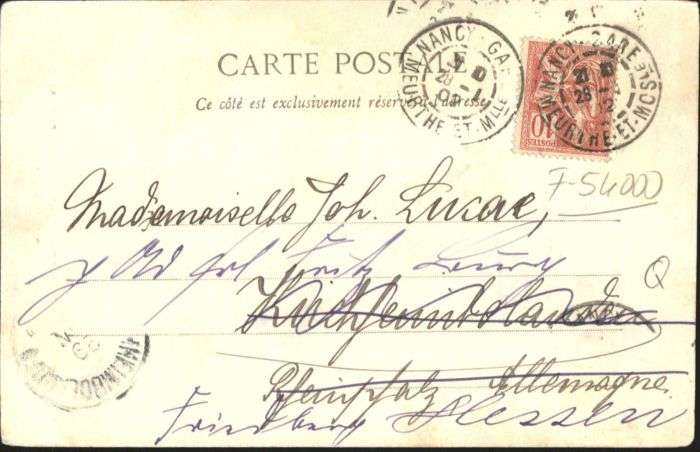 CARTE POSTALE
Ce côté est exclusivement réservé à l'adresse
NANCY-GARE
MEURTHE-ET-MLLE
NANCY-GARE
MEURTHE-ET-MOSLE
POSTES
10
7-54000
Mademoiselle Joh. Lucae,
Frl Fritz
Q
Kirchheimbolanden
Rheinpfalz Allemagne.
Friedberg Hessen